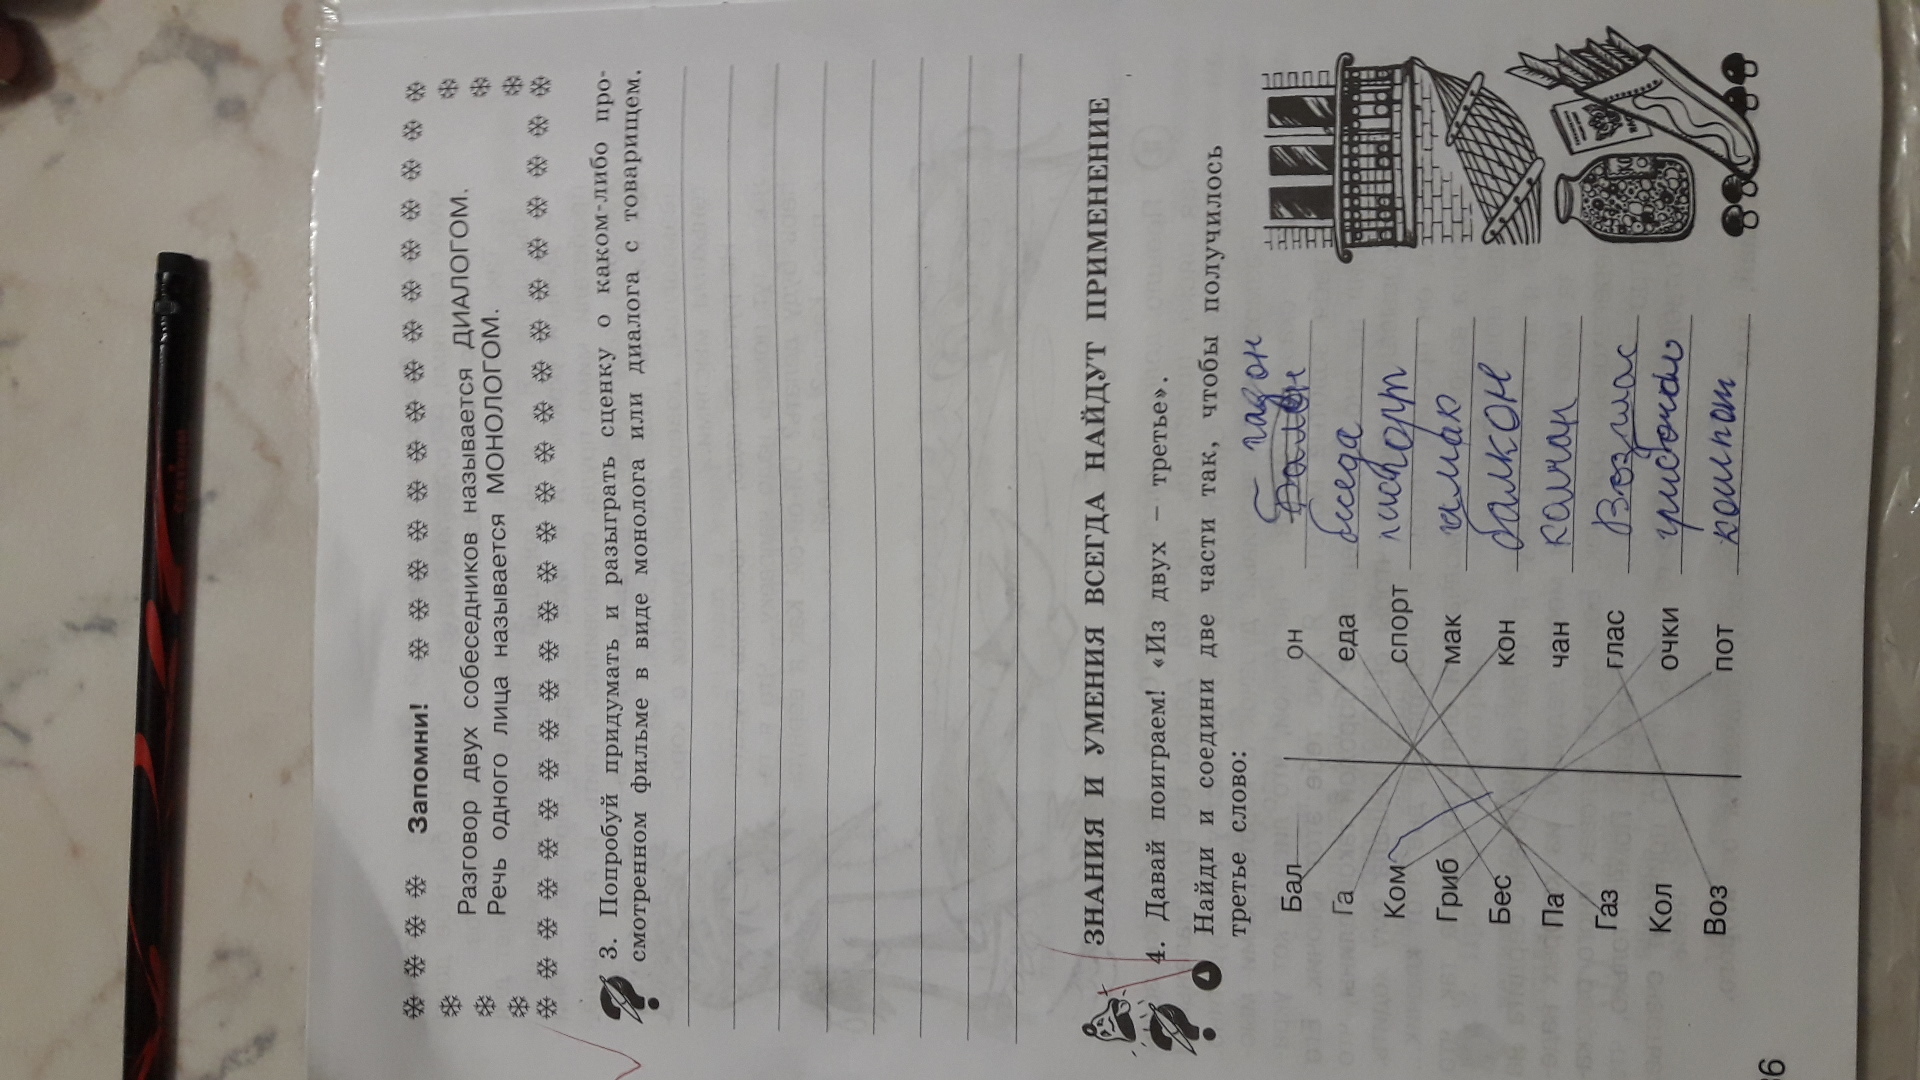 Запомни!
Разговор двух собеседников называется ДИАЛОГОМ.
Речь одного лица называется МОНОЛОГОМ.
3. Попробуй придумать и разыграть сценку о каком-либо про-
смотренном фильме в виде монлога или диалога с товарищем.
ЗНАНИЯ И УМЕНИЯ ВСЕГДА НАЙДУТ ПРИМЕНЕНИЕ
4. Давай поиграем! «Из двух – третье».
Найди и соедини две части так, чтобы получилось
третье слово:
Бал он газон
Га еда беседа
Ком спорт паспорт
Гриб мак гамак
Бес кон балкон
Па чан колчан
Газ глас Возглас
Кол очки грибочки
Воз пот компот